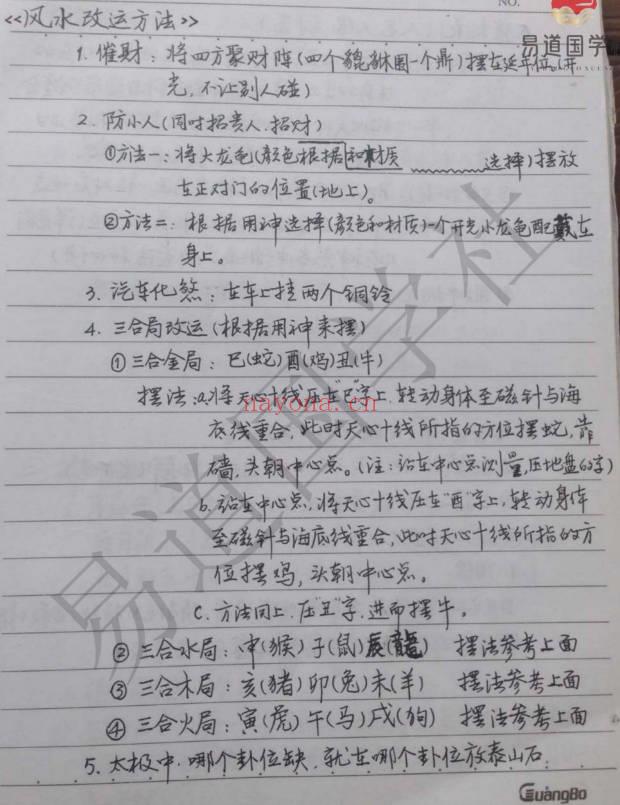 NO.
易道国学
《风水改运方法》
1. 催财：将四方聚财阵(四个貔貅围一个鼎)摆在延年位。(开
光，不让别人碰)
2. 防小人(同时招贵人.招财)
①方法一：将大龙龟(颜色根据和材质 选择)摆放
在正对门的位置(地上)。
②方法二：根据用神选择(颜色和材质)一个开光小龙龟配戴在
身上。
3. 汽车化煞：在车上挂两个铜铃
4. 三合局改运(根据用神来摆)
①三合金局：巳(蛇)酉(鸡)丑(牛)
摆法：a.将天心十线压在"巳"字上，转动身体至磁针与海
底线重合，此时天心十线所指的方位摆蛇，靠
墙，头朝中心点。(注：站在中心点测量，压地盘的字)
b. 站在中心点，将天心十线压在"酉"字上，转动身体
至磁针与海底线重合，此时天心十线所指的方
位摆鸡，头朝中心点。
C. 方法同上.压"丑"字.进而摆牛。
②三合水局：申(猴)子(鼠)辰(龍) 摆法参考上面
③三合木局：亥(猪)卯(兔)未(羊) 摆法参考上面
④三合火局：寅(虎)午(马)戌(狗) 摆法参考上面
5. 太极中.哪个卦位缺.就在哪个卦位放泰山石.
GuangBo
nayona.cn
易道国学社